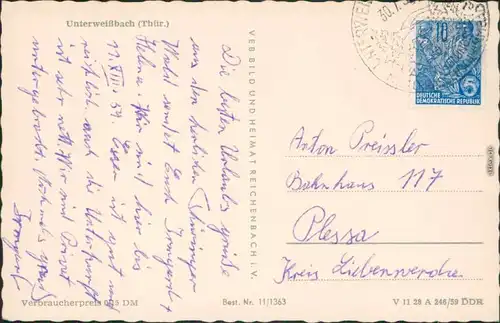 Unterweißbach (Thür.)
Die besten Urlaubsgrüße
aus dem herrlichen Thüringer
Wald sendet Euch Irmgard +
Helmut. Wir sind hier bis
11. VIII. 59. Essen ist gut und
reichlich auch die Unterkunft
ist sehr nett. Wir sind Privat
untergebracht. Nochmals Gruß
Irmgard
Verbraucherpreis 0,15 DM
VEB BILD UND HEIMAT REICHENBACH I. V.
Best. Nr. 11/1363
10
5
DEUTSCHE
DEMOKRATISCHE REPUBLIK
Anton Preissler
Bahnhaus 117
Plessa
Kreis Liebenwerda
V 11 28 A 246/59 DDR